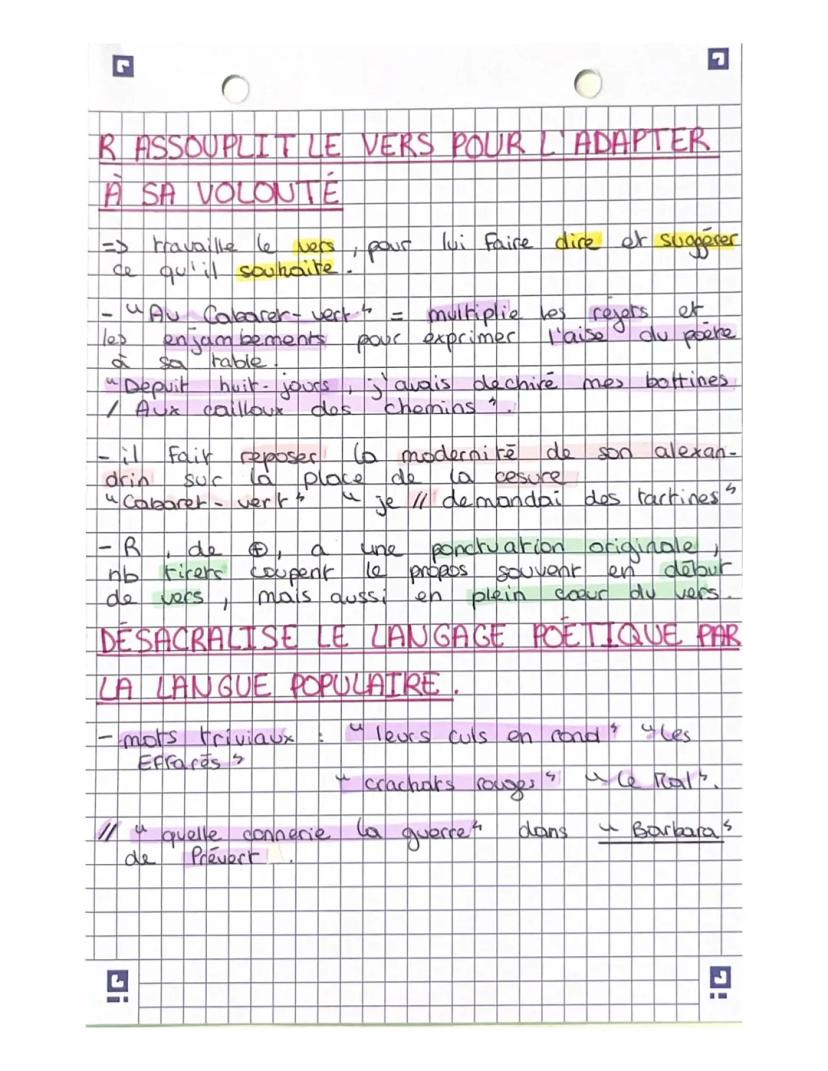 R ASSOUPLIT LE VERS POUR L'ADAPTER
À SA VOLONTÉ
=> travaille le vers, pour lui faire dire et suggérer
ce qu'il souhaite.
- "Au Cabaret-vert" = multiplie les rejets et
les enjambements pour exprimer l'aise du poète
à sa table.
"Depuit huit-jours, j'avais dechiré mes bottines
/ Aux cailloux des chemins".
- il fait reposer la modernité de son alexan-
drin sur la place de la cesure
"Cabaret-vert" "je // demandai des tartines"
- R, de ⊕, a une ponctuation originale,
nb tirets coupent le propos souvent en début
de vers, mais aussi en plein cœur du vers.
DÉSACRALISE LE LANGAGE POÉTIQUE PAR
LA LANGUE POPULAIRE.
- mots triviaux : "leurs culs en rond" "Les
Effarés"
"crachats rouges" "Le Mal".
// "quelle connerie la guerre" dans "Barbara"
de Prévert.